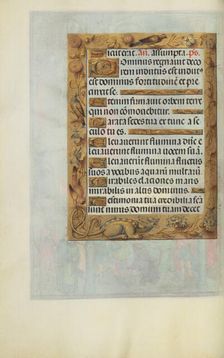 licit erat. An. Assumpta. ps
Dominus regnavit deco
rem indutus est: indut'
est dominus fortitudinē et pre
cinxit se.
Etenim firmavit orbem terre
qui non cōmovebitur.
Parata sedes tua ex tunc a se
culo tu es.
Elevaverūt flumina domine
elevaverūt flumina vocem suā.
Elevaverūt flumina fluctus
suos a vocibus aquarū multarū
Mirabiles elationes maris
mirabilis in altis dominus.
Testimonia tua credibilia facta
sunt nimis domum tuam decet